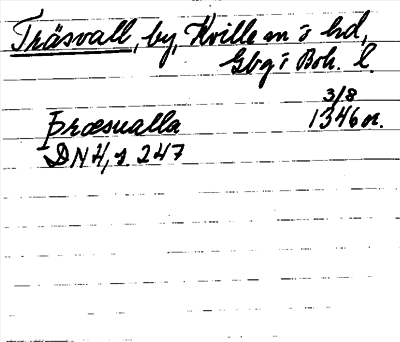 Träsvall, by, Kville sn o hd,
Gbg o Boh. l.
Þræsualla 3/8 1346 or.
DN 4, s 247